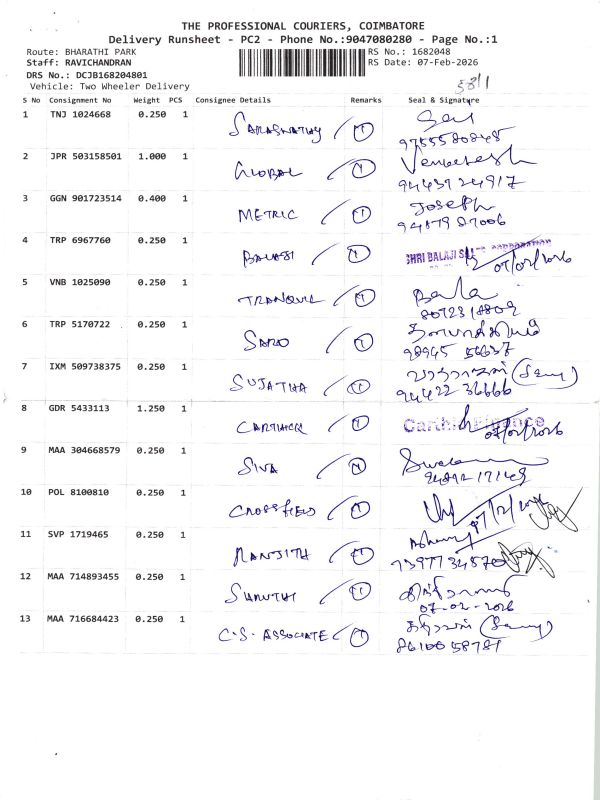 THE PROFESSIONAL COURIERS, COIMBATORE
Delivery Runsheet - PC2 - Phone No.:9047080280 - Page No.:1
Route: BHARATHI PARK RS No.: 1682048
Staff: RAVICHANDRAN RS Date: 07-Feb-2026
DRS No.: DCJB168204801
Vehicle: Two Wheeler Delivery
S No Consignment No Weight PCS Consignee Details Remarks Seal & Signature
1 TNJ 1024668 0.250 1
SARASWATHY 1
9755580845
2 JPR 503158501 1.000 1 Venkatesh
GLOBAL 1
9443724917
3 GGN 901723514 0.400 1 Joseph
METRIC 1
9487987006
4 TRP 6967760 0.250 1
BALAJI 1 SHRI BALAJI SALES CORPORATION
07/02/2026
5 VNB 1025090 0.250 1 Bala
TRANQUIL 1
8072318809
6 TRP 5170722 0.250 1
SARO 1
98945 56637
7 IXM 509738375 0.250 1
SUJATHA 1
94422 36666
8 GDR 5433113 1.250 1
CARTHICK 1 Carthik Finance
07/02/2026
9 MAA 304668579 0.250 1
SIVA 1
10 POL 8100810 0.250 1
CROSSFIELD 1
11 SVP 1719465 0.250 1
RANJITH 1
7397734570
12 MAA 714893455 0.250 1
SHRUTHI 1
07-02-2026
13 MAA 716684423 0.250 1
C.S. ASSOCIATE 1
86100 58781